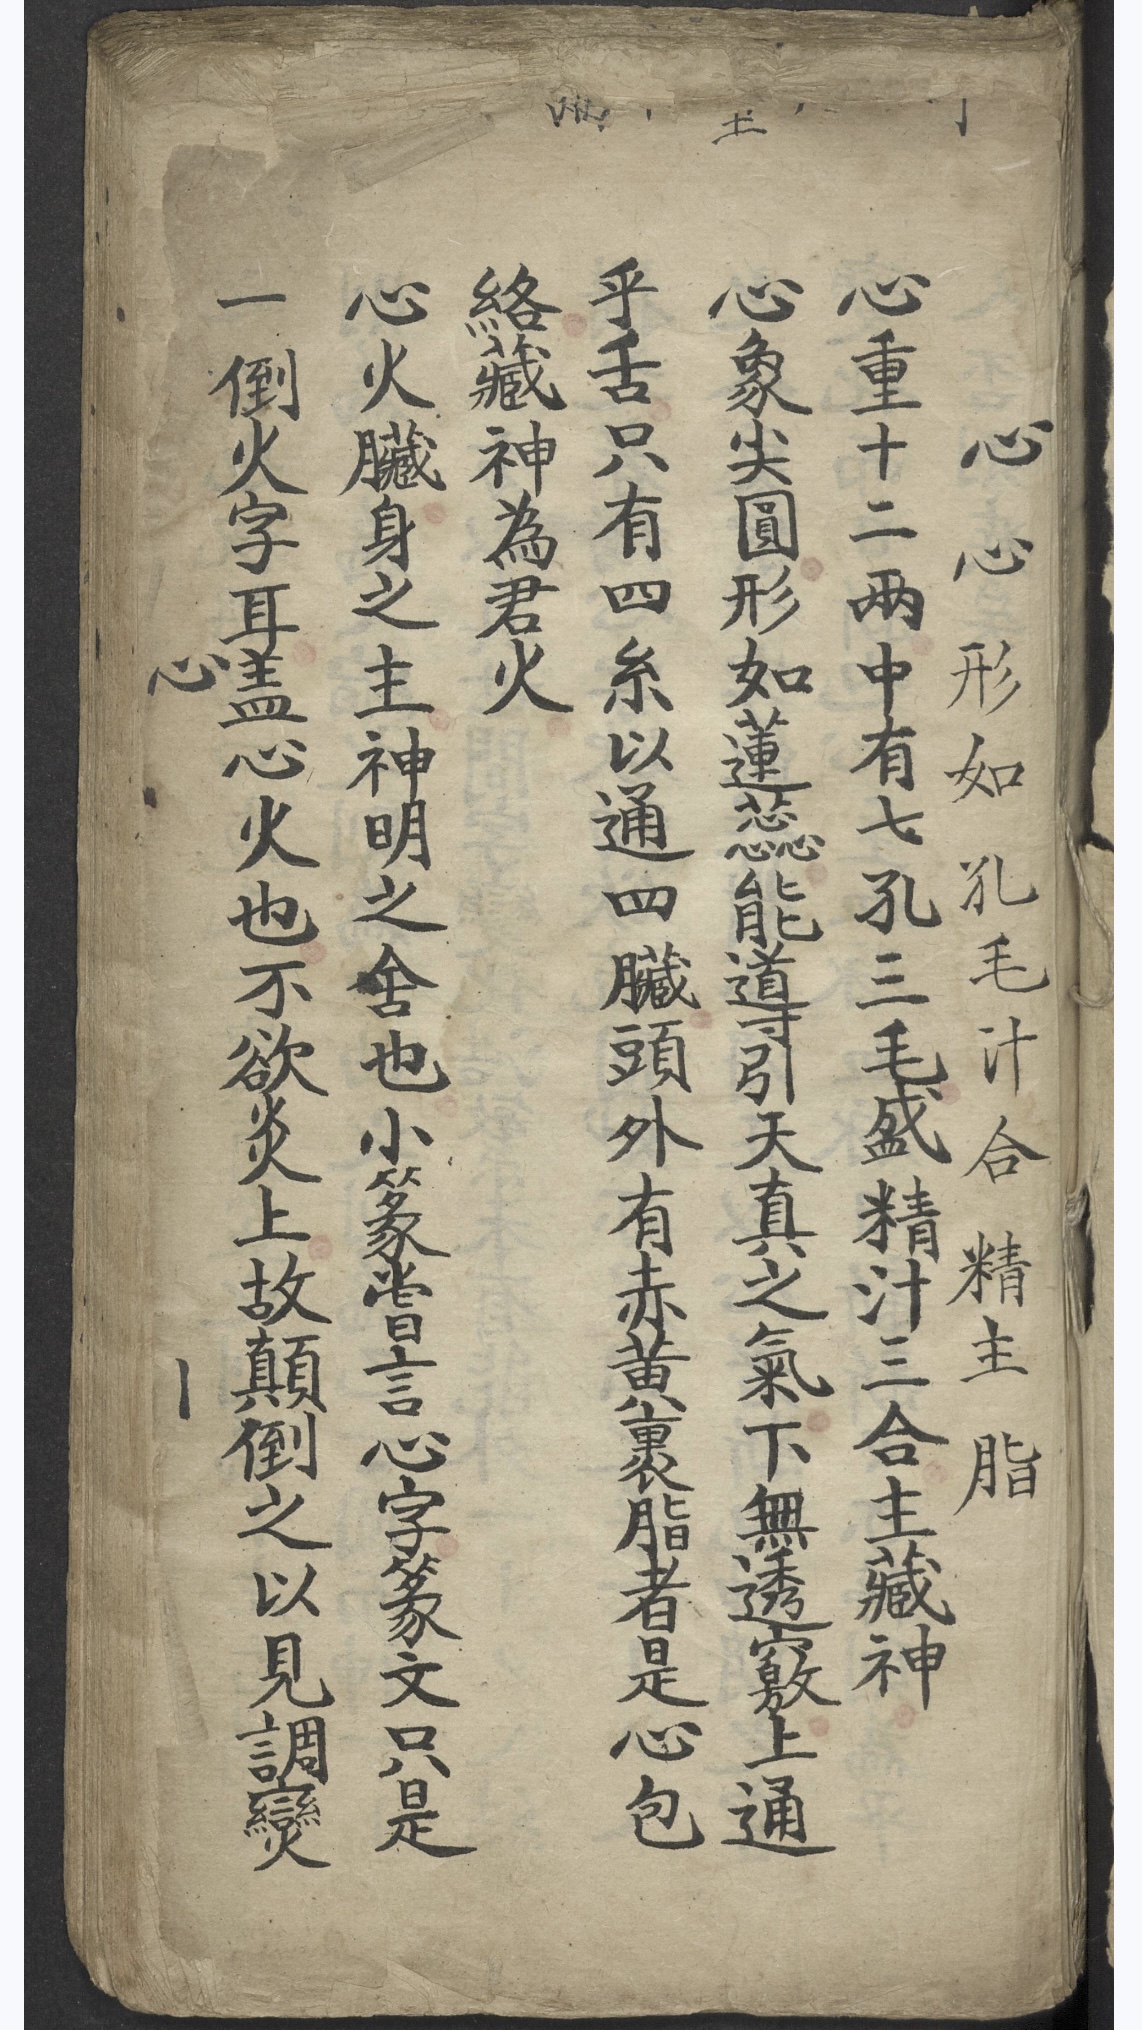 心心形如孔毛汁合精主脂
心重十二两中有七孔三毛盛精汁三合主藏神
心象尖圓形如蓮蕊能導引天真之氣下無透竅上通
乎舌只有四糸以通四臟頭外有赤黄裹脂者是心包
絡藏神為君火
心火臟身之主神明之舍也小篆嘗言心字篆文只是
一倒火字耳盖心火也不欲炎上故顛倒之以見調爕
心